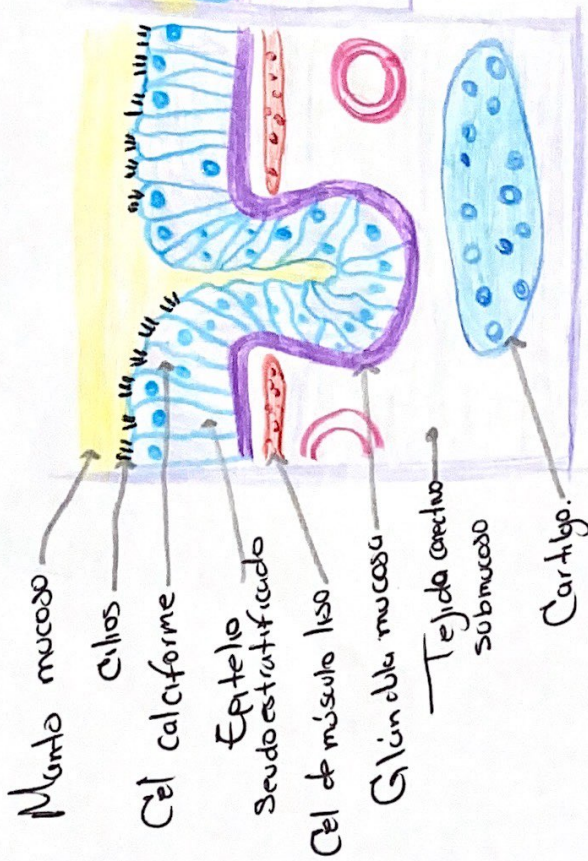 Manto mucoso
Cilios
Cel calciforme
Epitelio
Seudoestratificado
Cel de músculo liso
Glándula mucosa
Tejido conectivo
submucoso
Cartilgo.